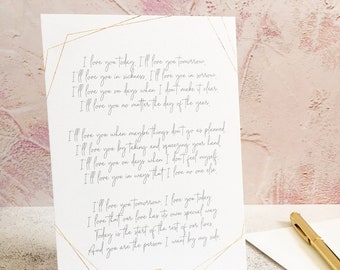 I love you today, I'll love you tomorrow
I'll love you in sickness, I'll love you in sorrow
I'll love you on days when I don't make it clear
I'll love you no matter the day of the year
I'll love you when maybe things don't go as planned
I'll love you by taking and squeezing your hand
I'll love you on days when I don't feel myself
I'll love you in ways that I love no one else
I'll love you tomorrow, I love you today
I love that our love has its own special way
Today is the start of the rest of our lives
And you are the person I want by my side